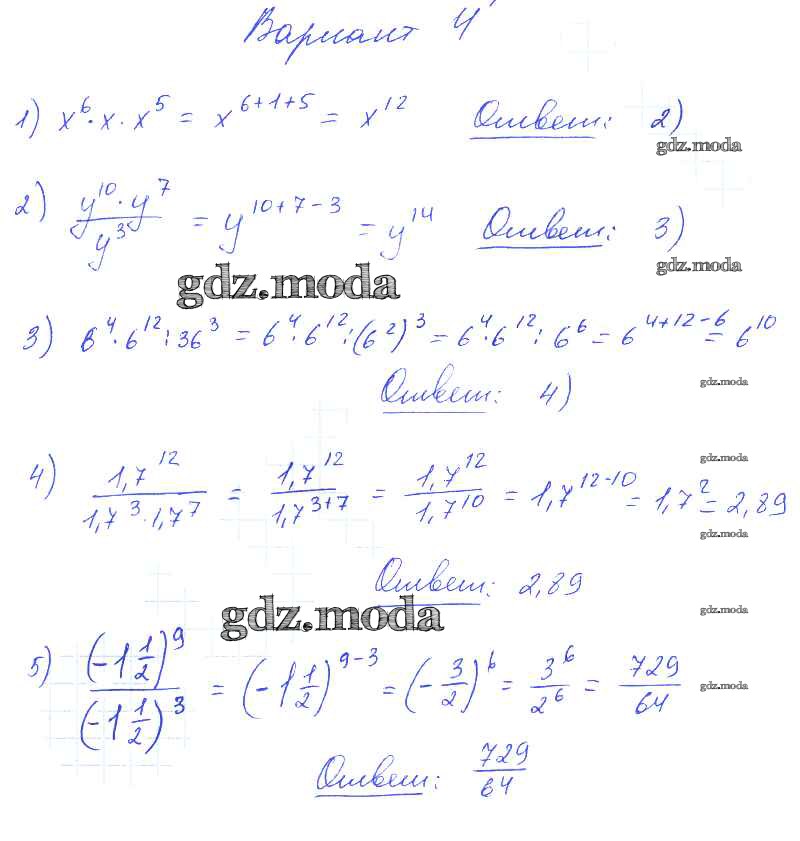 Вариант 4
1) x⁶·x·x⁵ = x⁶⁺¹⁺⁵ = x¹² Ответ: 2)
gdz.moda
2) y¹⁰·y⁷/y³ = y¹⁰⁺⁷⁻³ = y¹⁴ Ответ: 3)
gdz.moda
gdz.moda
3) 6⁴·6¹²:36³ = 6⁴·6¹²:(6²)³ = 6⁴·6¹²:6⁶ = 6⁴⁺¹²⁻⁶ = 6¹⁰
Ответ: 4)
gdz.moda
gdz.moda
4) 1,7¹²/1,7³·1,7⁷ = 1,7¹²/1,7³⁺⁷ = 1,7¹²/1,7¹⁰ = 1,7¹²⁻¹⁰ = 1,7² = 2,89
gdz.moda
Ответ: 2,89
gdz.moda
gdz.moda
5) (-1 1/2)⁹/(-1 1/2)³ = (-1 1/2)⁹⁻³ = (-3/2)⁶ = 3⁶/2⁶ = 729/64
gdz.moda
Ответ: 729/64